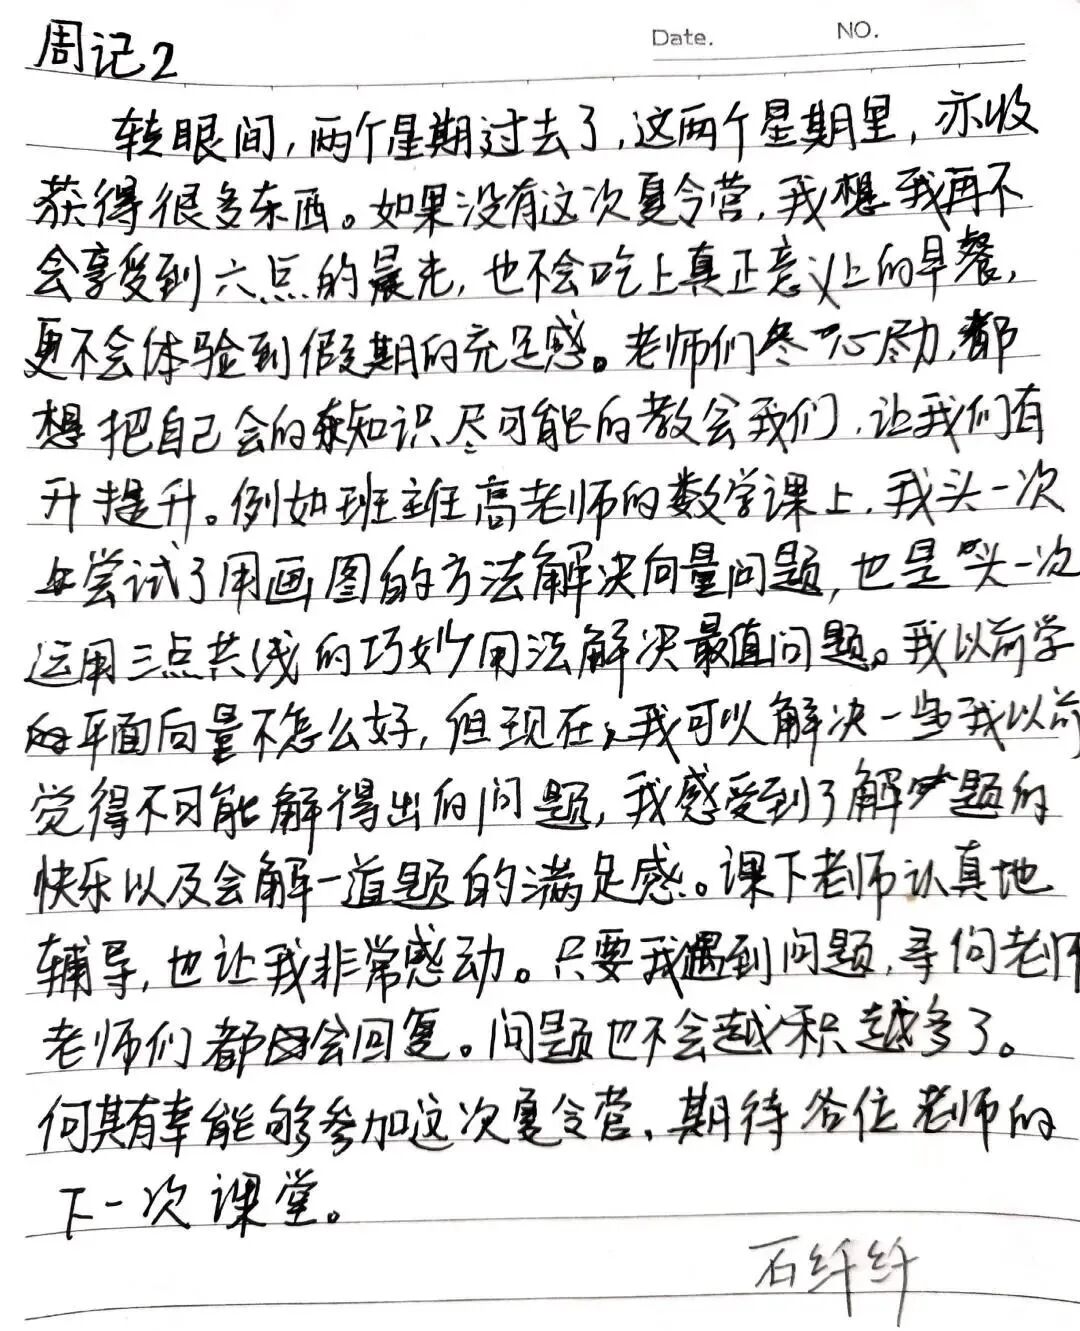 Date.　NO.
周记2
转眼间,两个星期过去了,这两个星期里,亦收
获得很多东西。如果没有这次夏令营,我想我再不
会享受到六点的晨光,也不会吃上真正意义上的早餐,
更不会体验到假期的充足感。老师们尽心尽力,都
想把自己会的知识尽可能的教会我们,让我们有
提升。例如班主任高老师的数学课上,我头一次
尝试了用画图的方法解决向量问题,也是头一次
运用三点共线的巧妙用法解决最值问题。我以前学
的平面向量不怎么好,但现在,我可以解决一些我以前
觉得不可能解得出的问题,我感受到了解题的
快乐以及会解一道题的满足感。课下老师认真地
辅导,也让我非常感动。只要我遇到问题,寻问老师
老师们都会回复。问题也不会越积越多了。
何其有幸能够参加这次夏令营,期待各位老师的
下一次课堂。
石纤纤